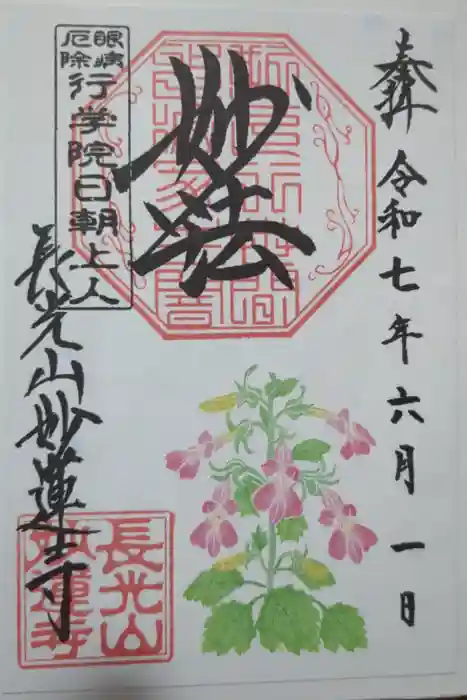 奉拝
令和七年六月一日
妙法
眼病
厄除
行学院日朝上人
長光山妙蓮寺
長光山
妙蓮寺